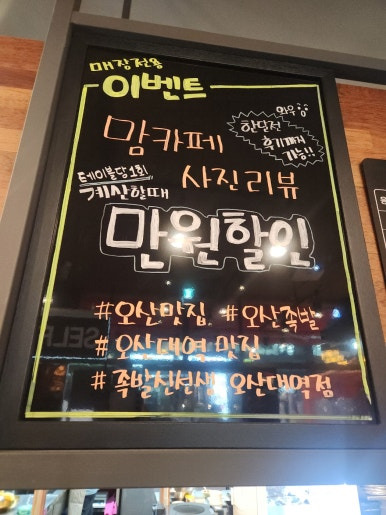 매장전용
이벤트
와우
맘카페
한달전
후기까지
가능!!
테이블당 1회
계산할때
사진리뷰
만원할인
#오산맛집 #오산족발
#오산대역 맛집
#족발신선생 오산대역점
SELF